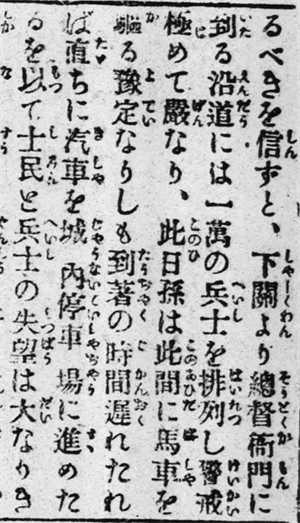 るべきを信ずと、下關より總督衙門に
到る沿道には一萬の兵士を排列し警戒
極めて嚴なり、此日孫は此間に馬車を
驅る豫定なりしも到著の時間遲れたれ
ば直ちに汽車を城內停車場に進めた
るを以て士民と兵士の失望は大なりき